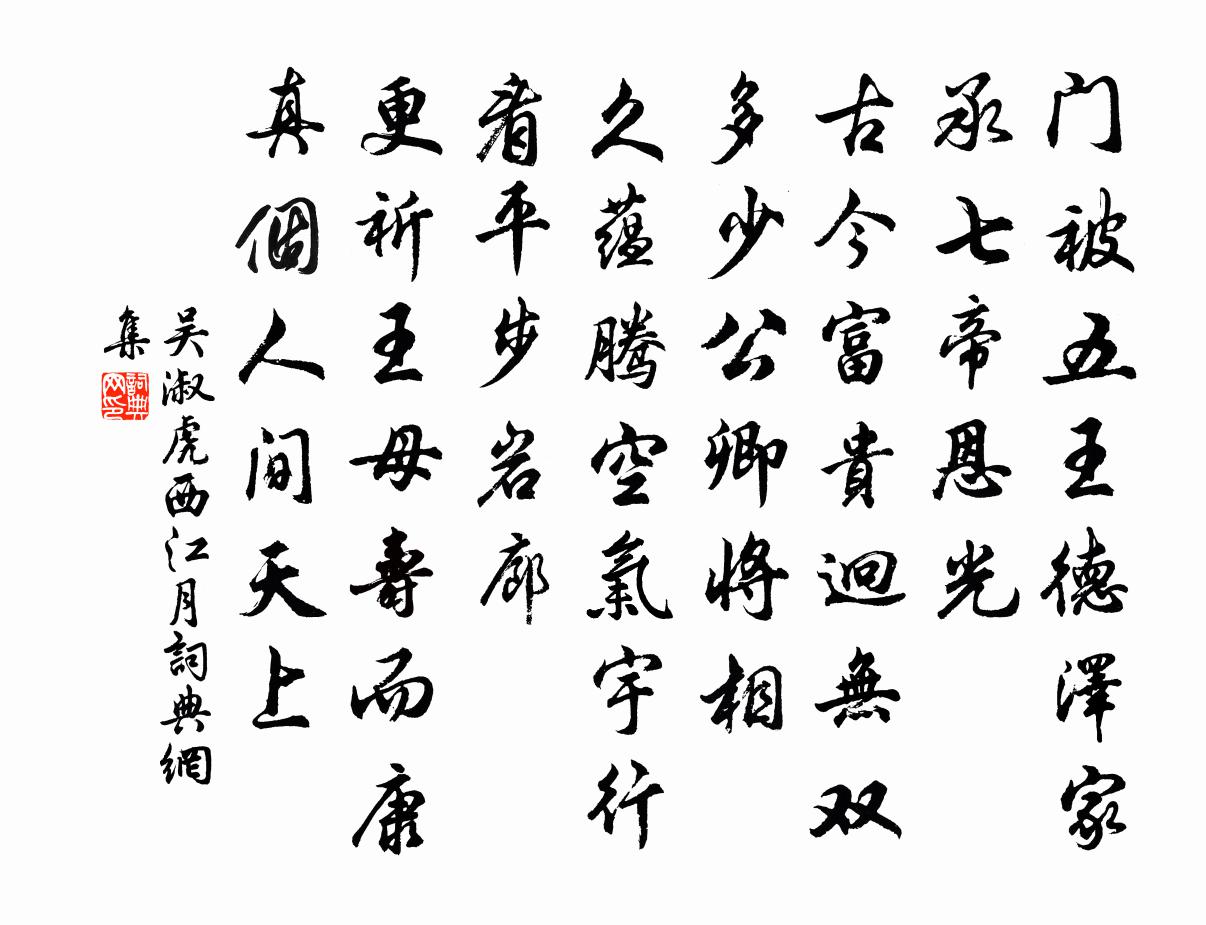 门被五王德澤家
承七帝恩光
古今富貴迥無双
多少公卿將相
久蕴騰空氣宇行
看平步岩廊
更祈王母壽而康
真個人间天上
吴淑虎西江月詞典網
集
詞典网印